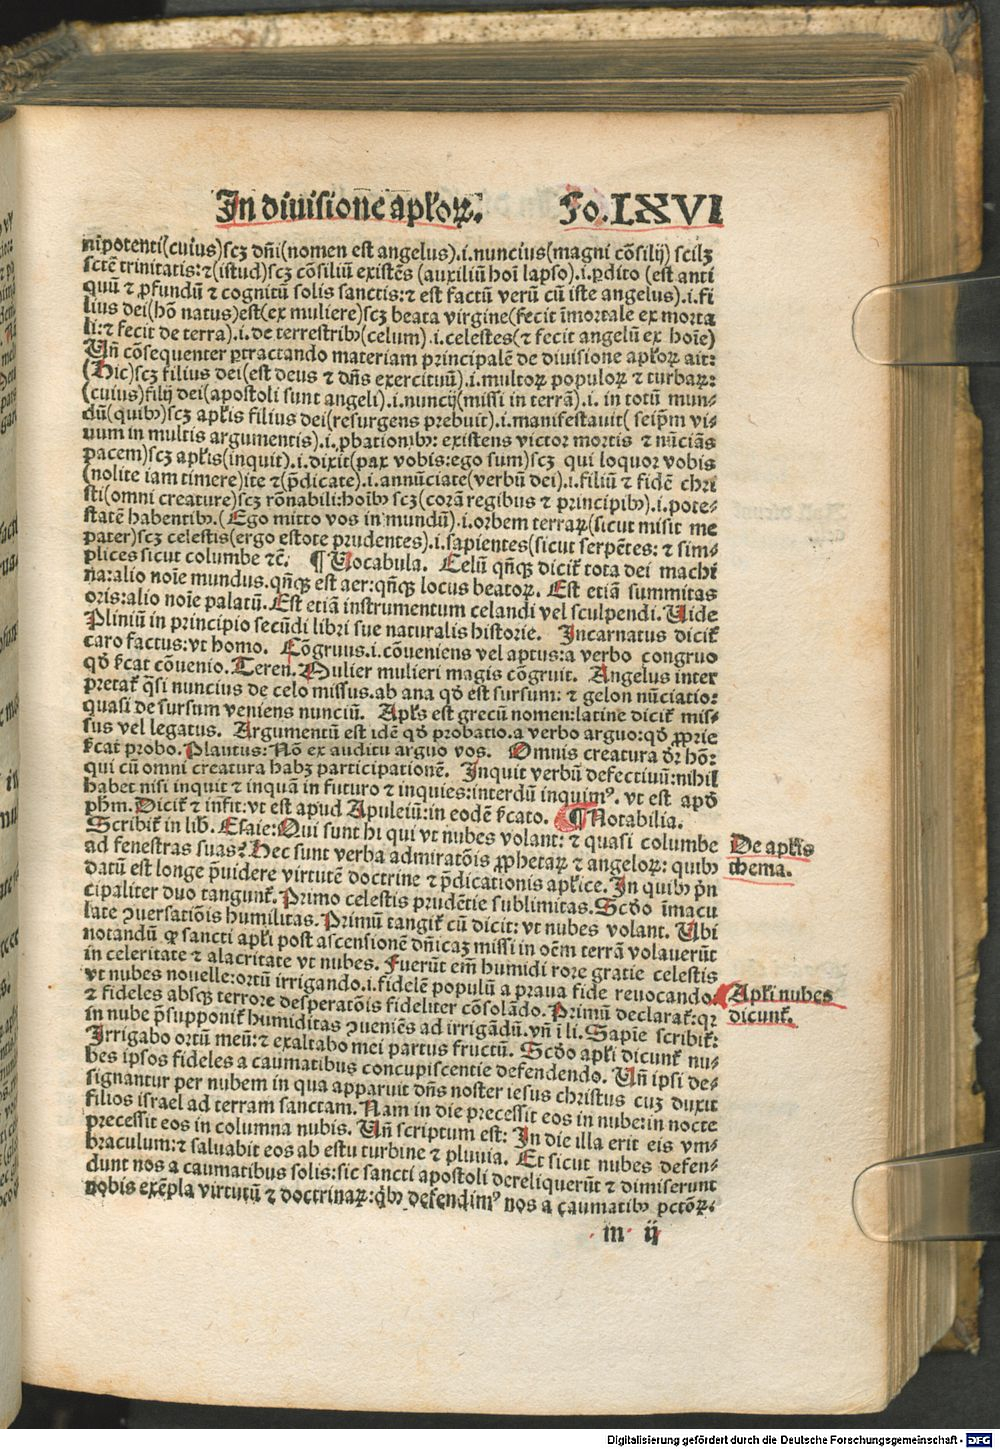 In diuisione apl'oꝝ. Fo. LXVI
nipotenti(cuius)scꝫ dñi(nomen est angelus).i.nuncius(magni cõsilij) scilꝫ
sctẽ trinitatis:⁊(istud)scꝫ cõsiliũ existẽs (auxiliũ hoĩ lapso).i.ꝑdito (est anti
quũ ⁊ ꝓfundũ ⁊ cognitũ solis sanctis:⁊ est factũ verũ cũ iste angelus).i.fi
lius dei(hõ natus)est(ex muliere)scꝫ beata virgine(fecit ĩmortale ex morta
li:⁊ fecit de terra).i.de terrestribꝰ(celum).i.celestes(⁊ fecit angelũ ex hoĩe)
Uñ cõsequenter ꝑtractando materiam principalẽ de diuisione apl'oꝝ ait:
(Hic)scꝫ filius dei(est deus ⁊ dñs exercituũ).i.multoꝝ populoꝝ ⁊ turbaꝝ:
(cuius)filij dei(apostoli sunt angeli).i.nuncij(missi in terrã).i. in totũ mun-
dũ(quibꝰ)scꝫ apl'is filius dei(resurgens prebuit).i.manifestauit( seip̃m vi-
uum in multis argumentis).i.ꝓbationibꝰ: existens victor mortis ⁊ nũciãs
pacem)scꝫ apl'is(inquit).i.dixit(pax vobis:ego sum)scꝫ qui loquor vobis
(nolite iam timere)ite ⁊(p̃dicate).i.annũciate(verbũ dei).i.filiũ ⁊ fidẽ chri
sti(omni creature)scꝫ rõnabili:hoĩbꝰ scꝫ(corã regibus ⁊ principibꝰ).i.pote-
statẽ habentibꝰ.(Ego mitto vos in mundũ).i.orbem terraꝝ(sicut misit me
pater)scꝫ celestis(ergo estote prudentes).i.sapientes(sicut serpẽtes: ⁊ sim-
plices sicut columbe ⁊c̃. ¶ Uocabula. Celũ qñqꝫ dicit̃ tota dei machi
na:alio noĩe mundus.qñqꝫ est aer:qñqꝫ locus beatoꝝ. Est etiã summitas
oris:alio noĩe palatũ. Est etiã instrumentum celandi vel sculpendi. Uide
Pliniũ in principio secũdi libri sue naturalis historie. Incarnatus dicit̃
caro factus:vt homo. Cõgruus.i.cõueniens vel aptus:a verbo congruo
qđ s̃cat cõuenio. Teren. Mulier mulieri magis cõgruit. Angelus inter
pretat̃ q̃si nuncius de celo missus.ab ana qđ est sursum: ⁊ gelon nũciatio:
quasi de sursum veniens nunciũ. Apl's est grecũ nomen:latine dicit̃ mis-
sus vel legatus. Argumentũ est idẽ qđ probatio.a verbo arguo:qđ ꝓprie
s̃cat probo. Plautus: Nõ ex auditu arguo vos. Omnis creatura dr̃ hõ:
qui cũ omni creatura habꝫ participationẽ. Inquit verbũ defectiuũ:nihil
habet nisi inquit ⁊ inquã in futuro ⁊ inquies:interdũ inquimꝰ. vt est apđ
ph̃m. Dicit̃ ⁊ infit:vt est apud Apuleiũ:in eodẽ s̃cato. ¶ Notabilia.
Scribit̃ in lib. Esaie: Qui sunt hi qui vt nubes volant: ⁊ quasi columbe
ad fenestras suas? Hec sunt verba admiratõis ꝓphetaꝝ ⁊ angeloꝝ: quibꝰ
datũ est longe p̃uidere virtutẽ doctrine ⁊ p̃dicationis apl'ice. In quibꝰ p̃n
cipaliter duo tangunt̃. Primo celestis prudẽtie sublimitas. Scđo ĩmacu
late ꝯuersatiõis humilitas. Primũ tangit̃ cũ dicit: vt nubes volant. Ubi
notandũ ꝙ sancti apl'i post ascensionẽ dñicaꝫ missi in oẽm terrã volauerũt
in celeritate ⁊ alacritate vt nubes. Fuerũt em̃ humidi rore gratie celestis
vt nubes nouelle:ortũ irrigando.i.fidelẽ populũ a praua fide reuocando.
⁊ fideles absqꝫ terrore desperatõis fideliter cõsolãdo. Primũ declarat̃:qꝛ
in nube p̃supponit̃ humiditas ꝯueniẽs ad irrigãdũ. vñ i li. Sapĩe scribit̃:
Irrigabo ortũ meũ:⁊ exaltabo mei partus fructũ. Scđo apl'i dicunt̃ nu-
bes ipsos fideles a caumatibus concupiscentie defendendo. Uñ ipsi de-
signantur per nubem in qua apparuit dñs noster iesus christus cuꝫ duxit
filios israel ad terram sanctam. Nam in die precessit eos in nube:in nocte
precessit eos in columna nubis. Uñ scriptum est: In die illa erit eis vm-
braculum:⁊ saluabit eos ab estu turbine ⁊ pluuia. Et sicut nubes defen-
dunt nos a caumatibus solis:sic sancti apostoli dereliquerũt ⁊ dimiserunt
nobis exẽpla virtutũ ⁊ doctrinaꝝ:q̃bꝰ defendimꝰ nos a caumatibꝰ pctõꝝ.
m ij
De apl'is
thema.
Apl'i nubes
dicunt̃.
Digitalisierung gefördert durch die Deutsche Forschungsgemeinschaft - DFG